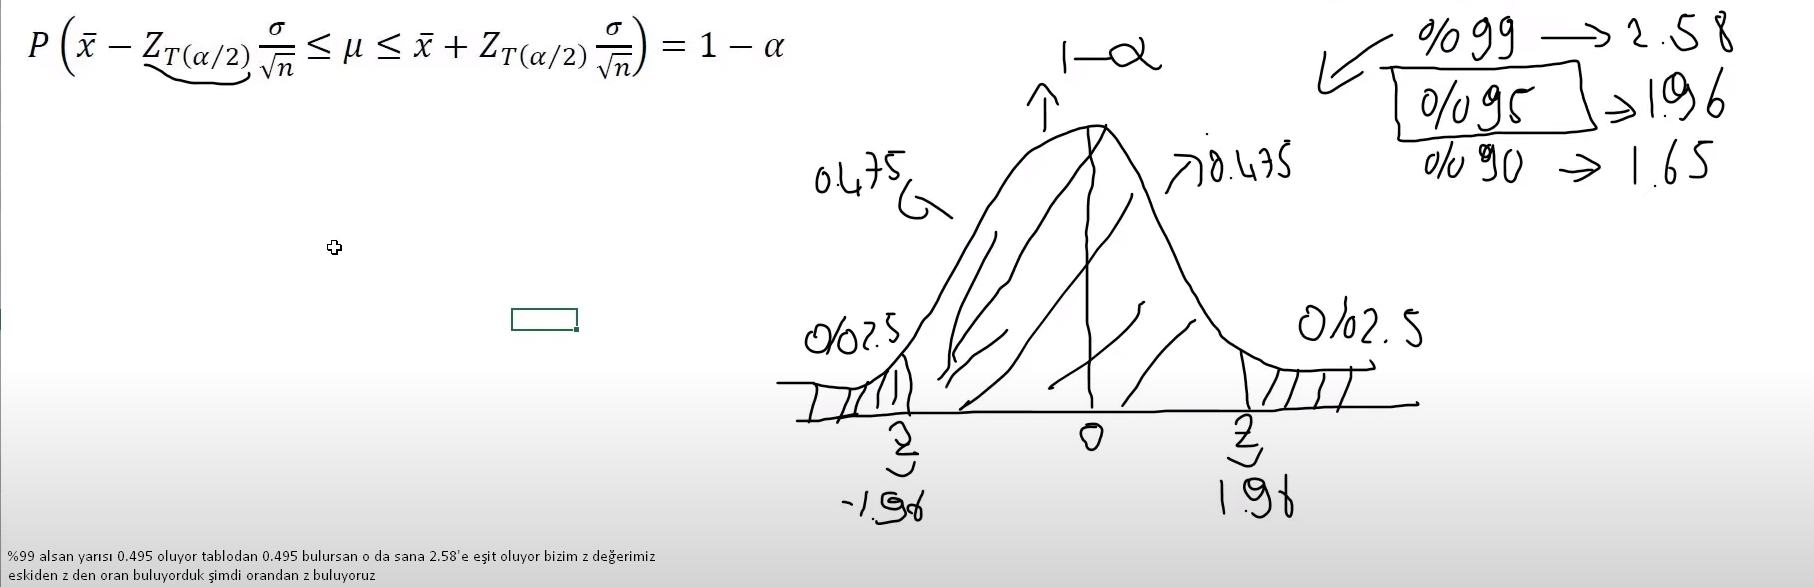 P(x̄ − Z_T(α/2) σ/√n ≤ μ ≤ x̄ + Z_T(α/2) σ/√n) = 1 − α
%99 → 2.58
%95 ⇒ 1.96
%90 → 1.65
1-α
0.475
0.475
%2.5
%2.5
Z
0
Z
-1.96
1.96
%99 alsan yarısı 0.495 oluyor tablodan 0.495 bulursan o da sana 2.58'e eşit oluyor bizim z değerimiz
eskiden z den oran buluyorduk şimdi orandan z buluyoruz